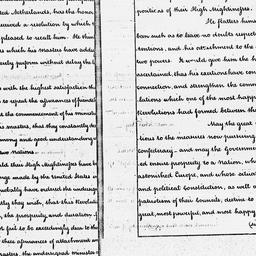 ited Netherlands, has the honor
received a resolution by which t
pleased to recall him. He thin
s which his masters have addu
ely perform without delay the l
s with the highest satisfaction th
to repeat the assurances of friends
the commencement of his ministr
his masters, that they constantly de
mony and good understanding
two nations.
ld their High Mightinesses have be
nge made by the United States in
probably have endured the undergo
ly they wish, that this Revolution
, the prosperity, and duration of
not fail to be exceedingly due to the
these assurances of attachment an
masters, the undersigned minister
portions of their High Mightinesses.
He flatters himse
been such as to leave no doubts respecti
tentions, and his attachment to the
two powers. It would give him the h
ascertained, that his exertions have con
connection, and strengthen the comm
lations which one of the most happy
Revolutions had formed between the
May the great
tions to the measures now pursuing
confederacy and may the Governm
ed ensure prosperity to a Nation, wh
astonished Europe, and whose actua
and political Constitution, as well as
patriotism of their Councils, destine to
great, most powerful, and most happy